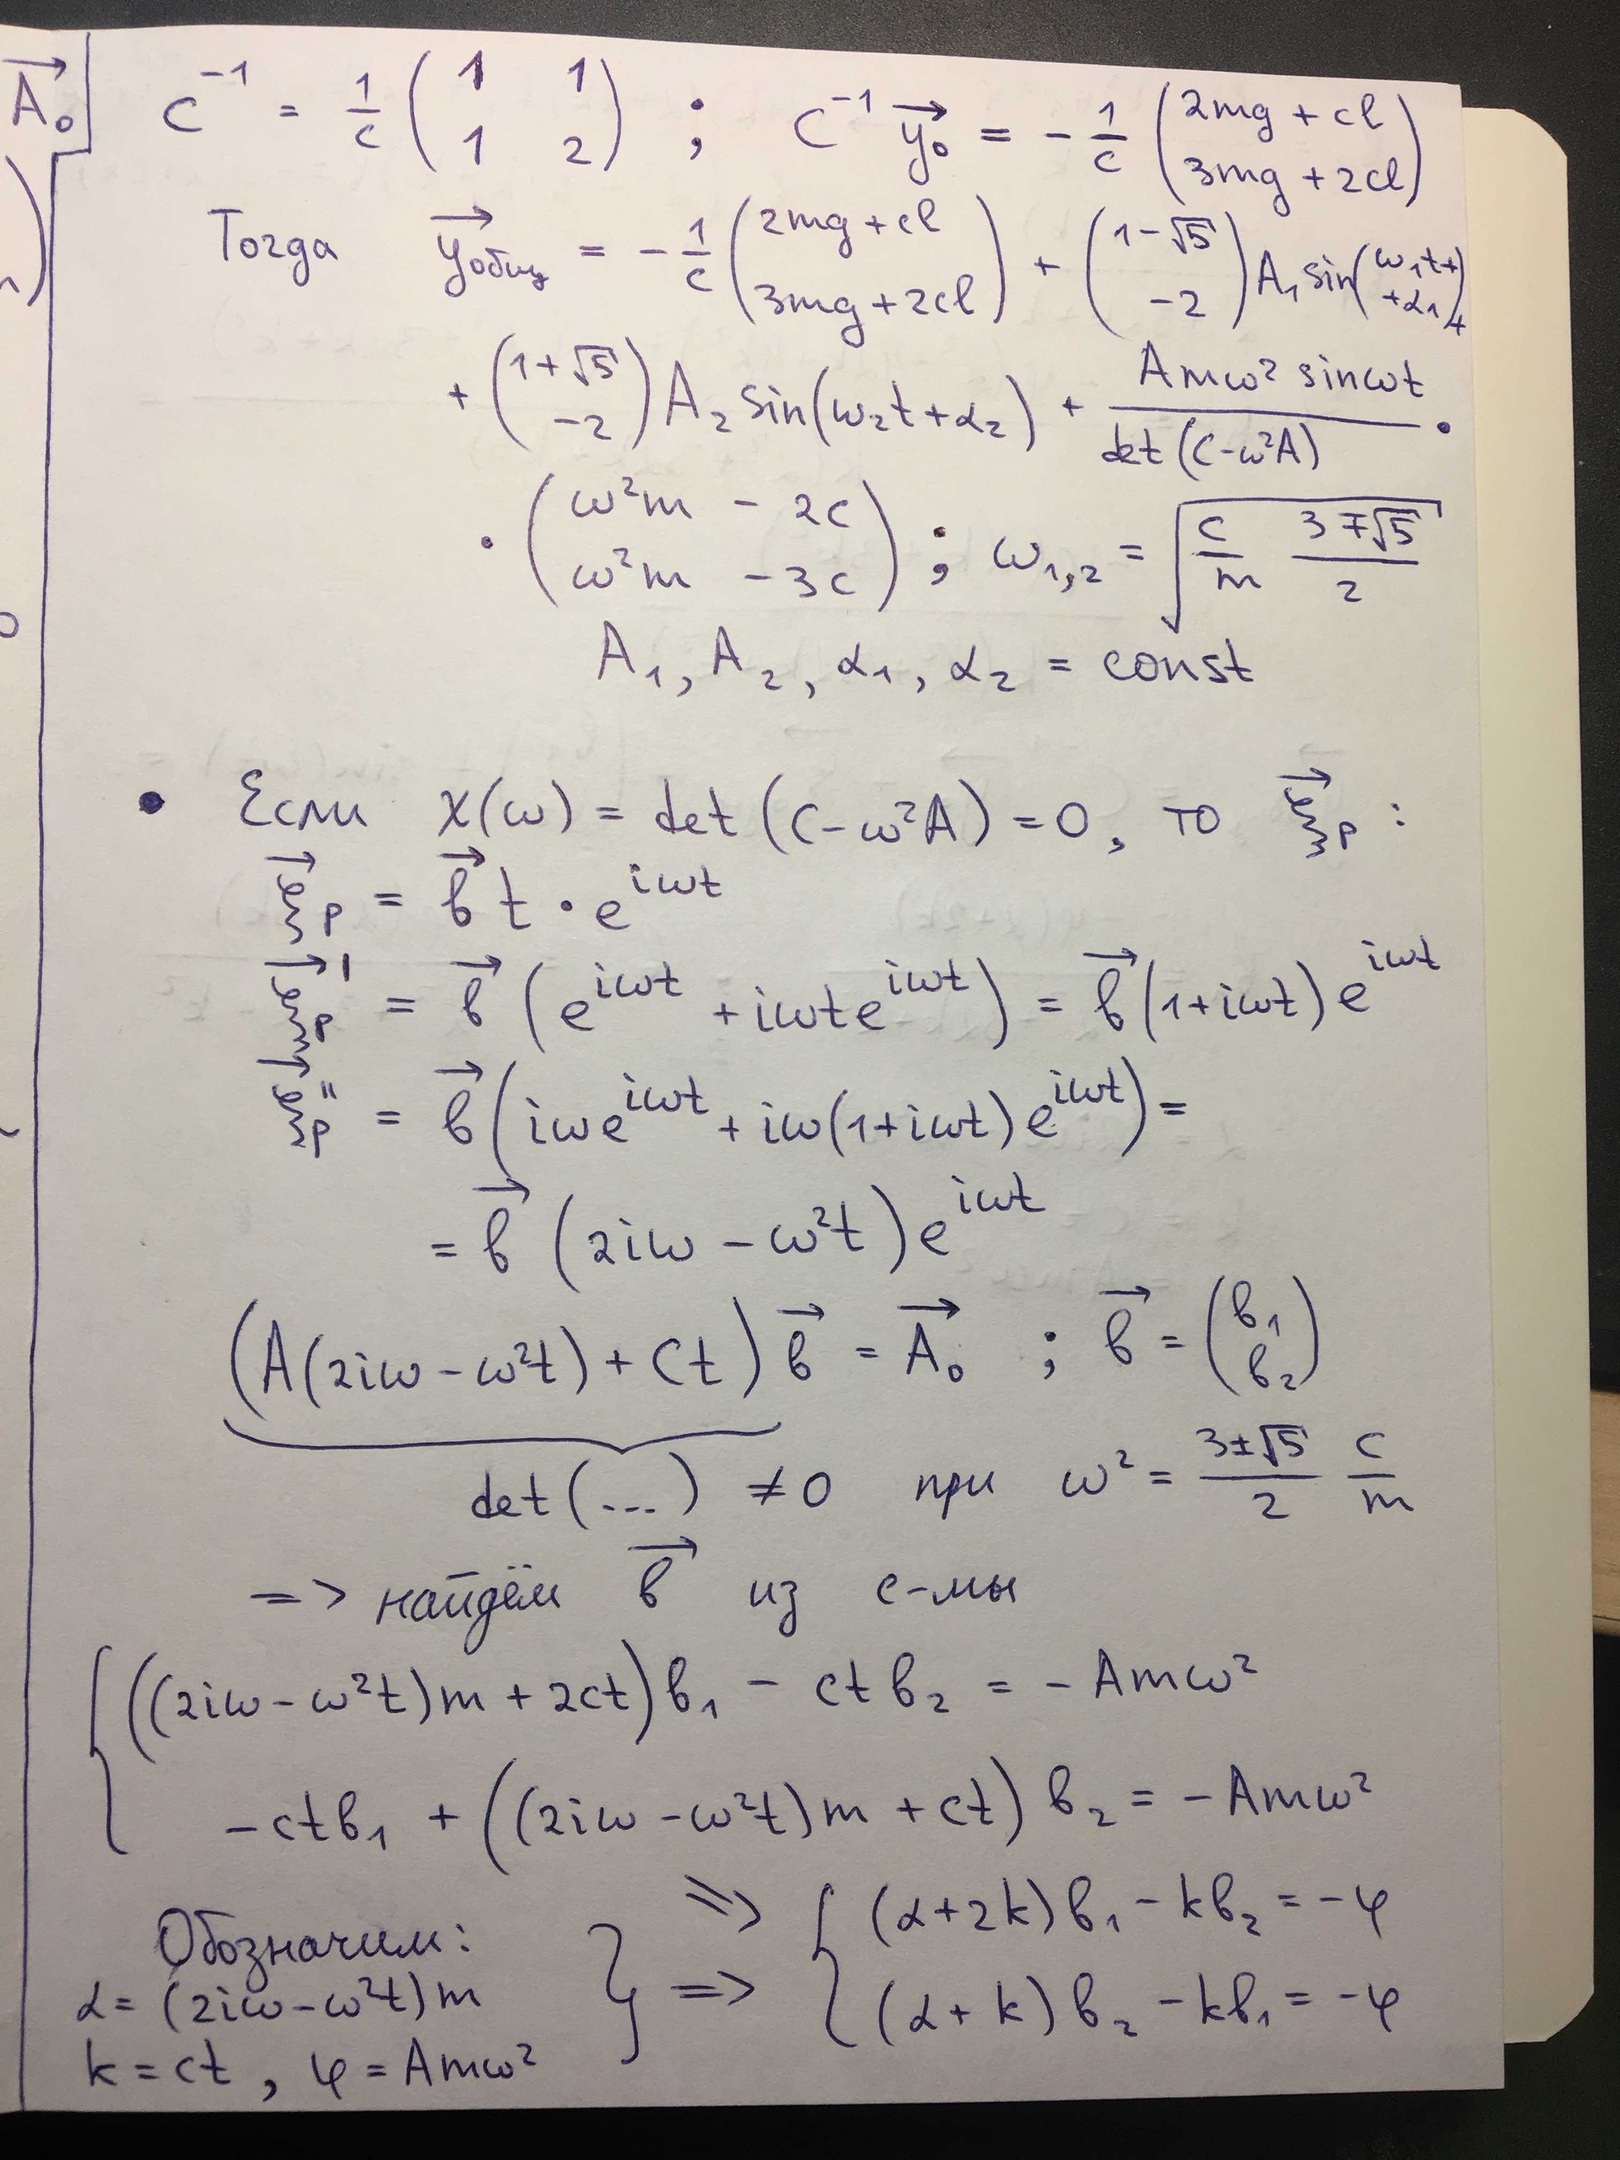 A⃗₀
C⁻¹ = 1/c (1 1; 1 2) ; C⁻¹ y⃗₀ = - 1/c (2mg + cl; 3mg + 2cl)
Тогда y⃗общ = - 1/c (2mg + cl; 3mg + 2cl) + (1-√5; -2) A₁ sin(ω₁t + + α₁) +
+ (1+√5; -2) A₂ sin(ω₂t + α₂) + Amω² sinωt / det(C-ω²A) ·
· (ω²m - 2c; ω²m - 3c) ; ω₁,₂ = √(c/m (3∓√5)/2)
A₁, A₂, α₁, α₂ = const
• Если χ(ω) = det(C-ω²A) = 0, то ξ⃗p :
ξ⃗p = b⃗ t · e^{iωt}
ξ⃗p' = b⃗ (e^{iωt} + iωte^{iωt}) = b⃗(1+iωt) e^{iωt}
ξ⃗p'' = b⃗ (iωe^{iωt} + iω(1+iωt)e^{iωt}) =
= b⃗ (2iω - ω²t) e^{iωt}
(A(2iω - ω²t) + Ct) b⃗ = A⃗₀ ; b⃗ = (b₁; b₂)
det(...) ≠ 0 при ω² = (3±√5)/2 c/m
=> найдём b⃗ из с-мы
{ ((2iω - ω²t)m + 2ct) b₁ - ct b₂ = - Amω²
-ctb₁ + ((2iω - ω²t)m + ct) b₂ = - Amω²
Обозначим:
α = (2iω - ω²t)m
k = ct , φ = Amω²
} => { (α+2k) b₁ - kb₂ = -φ
(α + k) b₂ - kb₁ = -φ